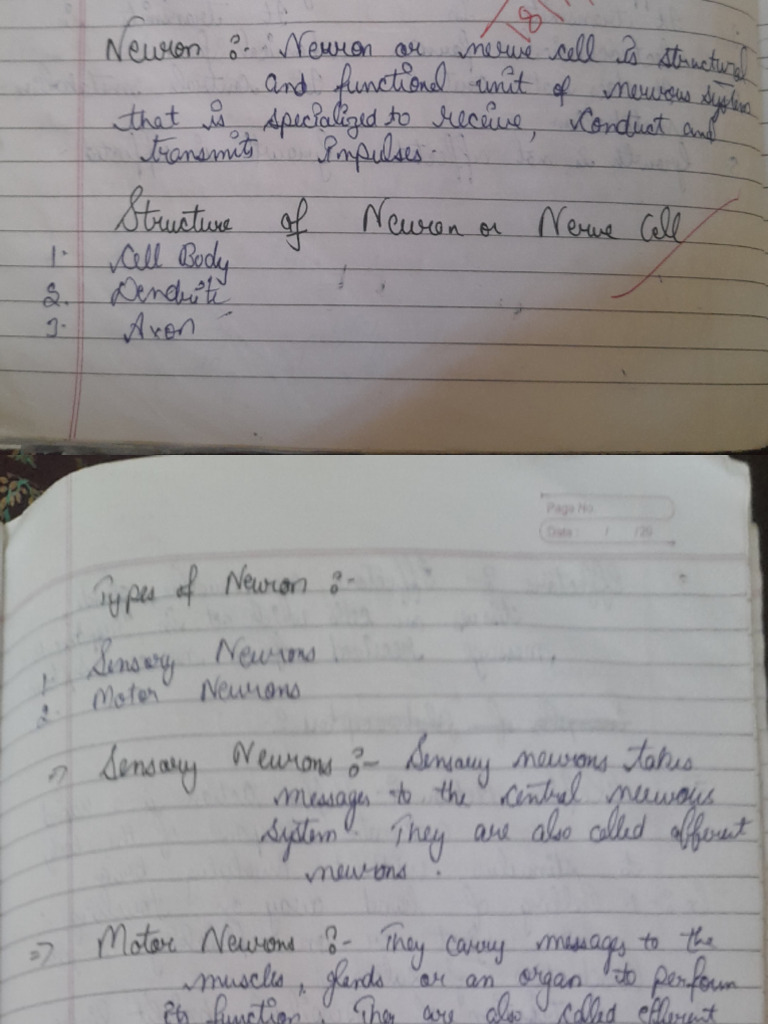 18/
Neuron :- Neuron or nerve cell is structural
and functional unit of nervous system
that is specialized to receive, conduct and
transmit impulses.
Structure of Neuron or Nerve Cell
1. Cell Body
2. Dendrite
3. Axon
Page No.
Date : / /20
Types of Neuron :-
1. Sensary Neurons
2. Motor Neurons
=> Sensary Neurons :- Sensary neurons takes
messages to the central nervous
system. They are also called afferent
neurons.
=> Motor Neurons :- They carry messages to the
muscles, glands or an organ to perform
its function. They are also called efferent